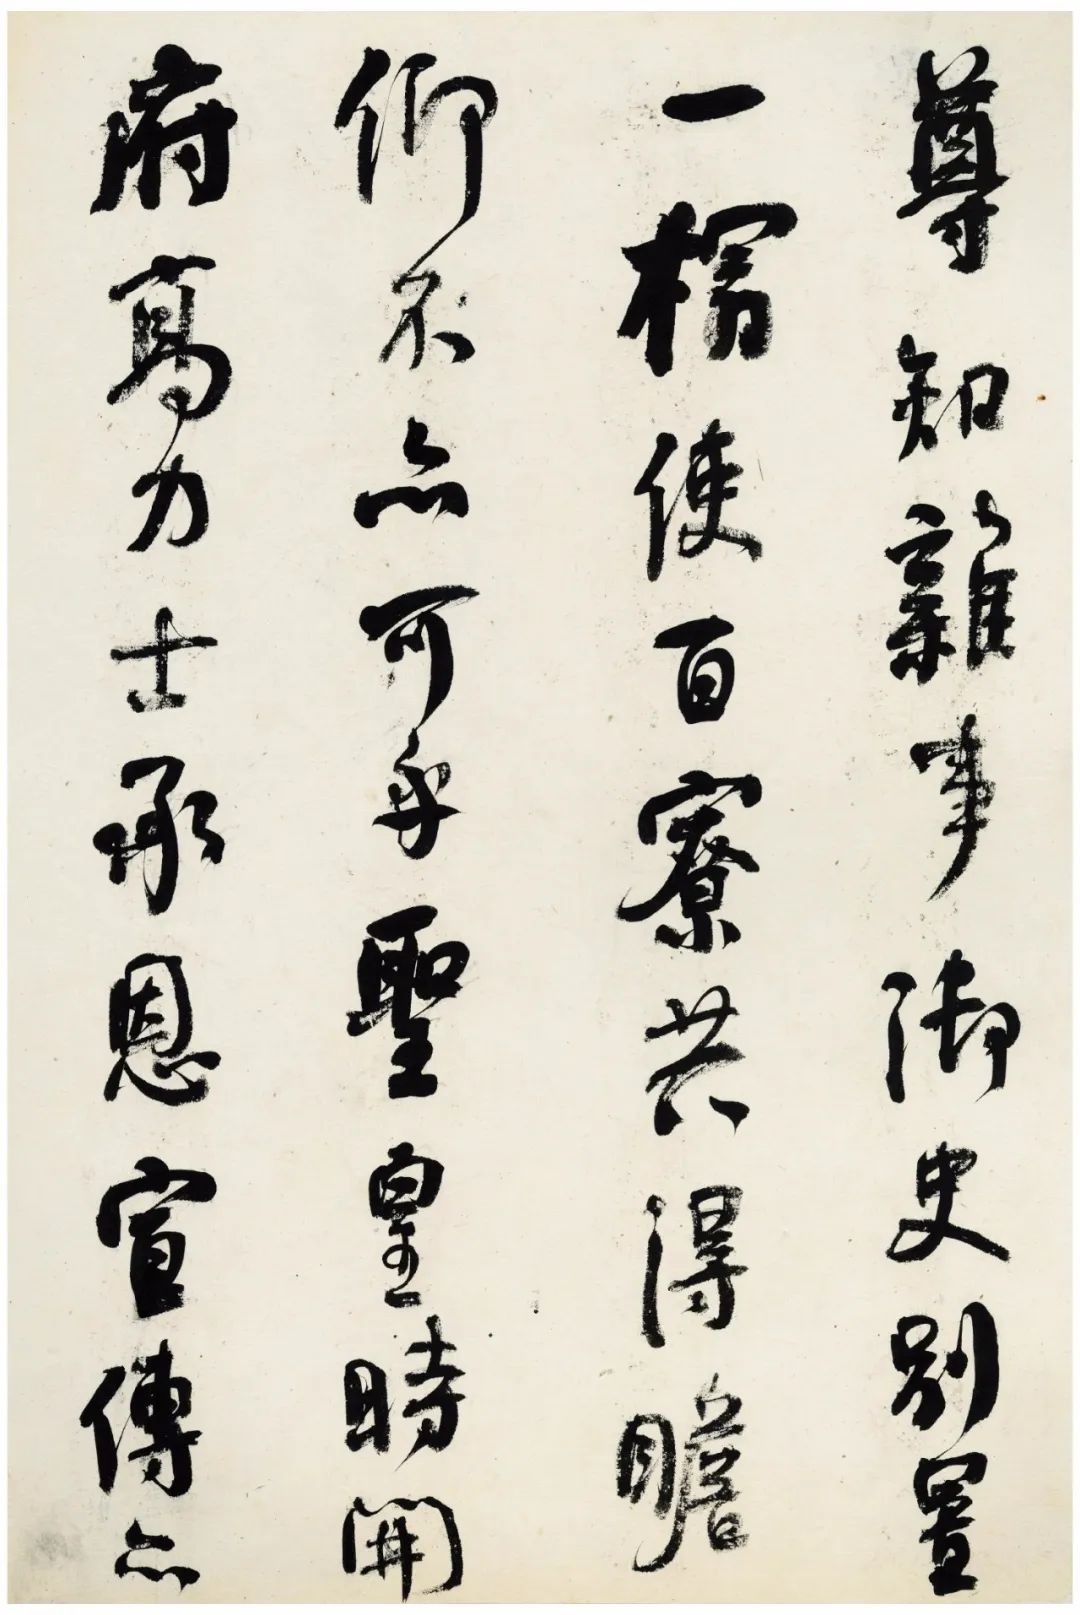 尊知雜事御史別置
一榻使百寮共得瞻
仰不亦可乎聖皇時開
府高力士承恩宣傳亦